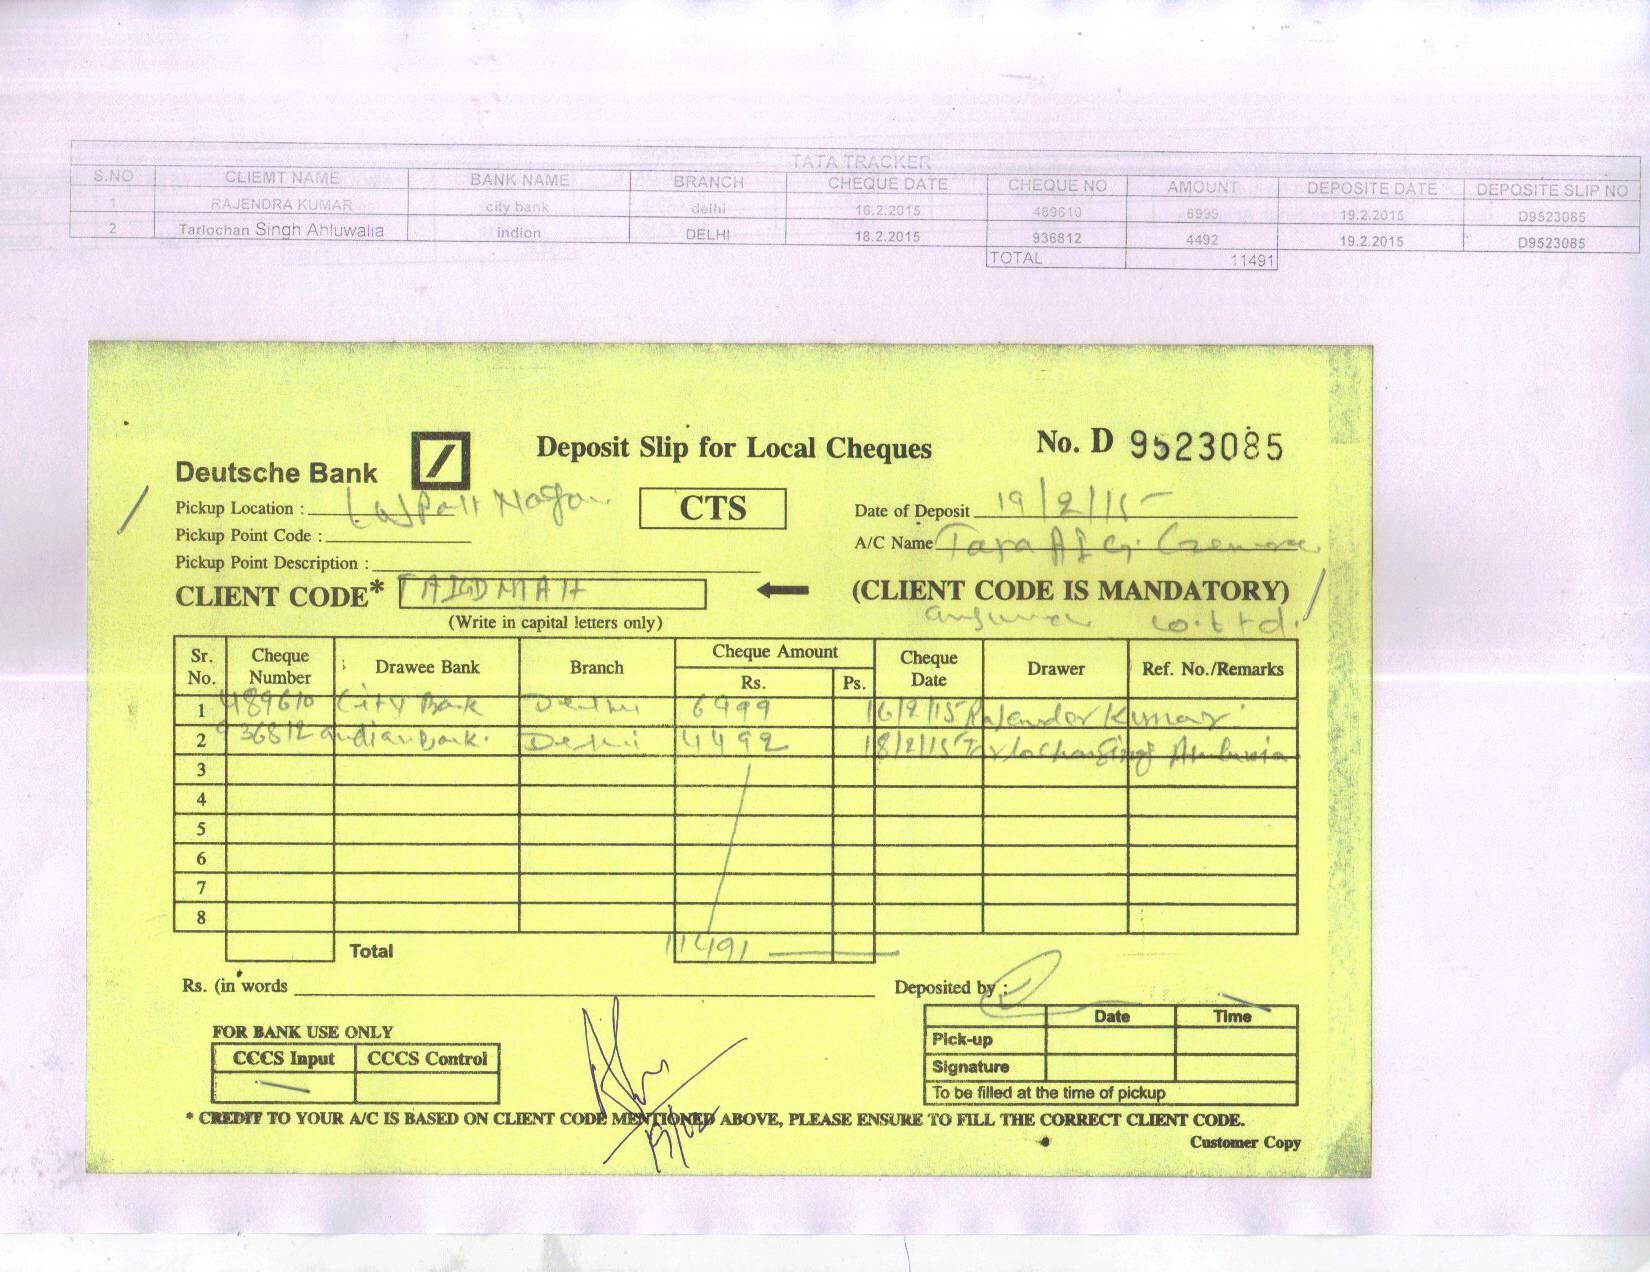 TATA TRACKER
S.NO CLIEMT NAME BANK NAME BRANCH CHEQUE DATE CHEQUE NO AMOUNT DEPOSITE DATE DEPOSITE SLIP NO
1 RAJENDRA KUMAR city bank delhi 16.2.2015 489610 6999 19.2.2015 D9523085
2 Tarlochan Singh Ahluwalia indion DELHI 18.2.2015 936812 4492 19.2.2015 D9523085
TOTAL 11491
Deutsche Bank
Deposit Slip for Local Cheques
No. D 9523085
Pickup Location :
CTS
Date of Deposit 19/2/15
Pickup Point Code :
A/C Name Tata AIG
Pickup Point Description :
CLIENT CODE* TAIGDMAH
(CLIENT CODE IS MANDATORY)
(Write in capital letters only)
Co. Ltd.
Sr. No. Cheque Number Drawee Bank Branch Cheque Amount Rs. Ps. Cheque Date Drawer Ref. No./Remarks
1 489610 City Bank Delhi 6999 16/2/15 Rajender Kumar
2 936812 Delhi 4492 18/2/15
3
4
5
6
7
8
Total 11491
Rs. (in words
Deposited by :
FOR BANK USE ONLY
CCCS Input CCCS Control
Date Time
Pick-up
Signature
To be filled at the time of pickup
19/02
* CREDIT TO YOUR A/C IS BASED ON CLIENT CODE MENTIONED ABOVE, PLEASE ENSURE TO FILL THE CORRECT CLIENT CODE.
Customer Copy